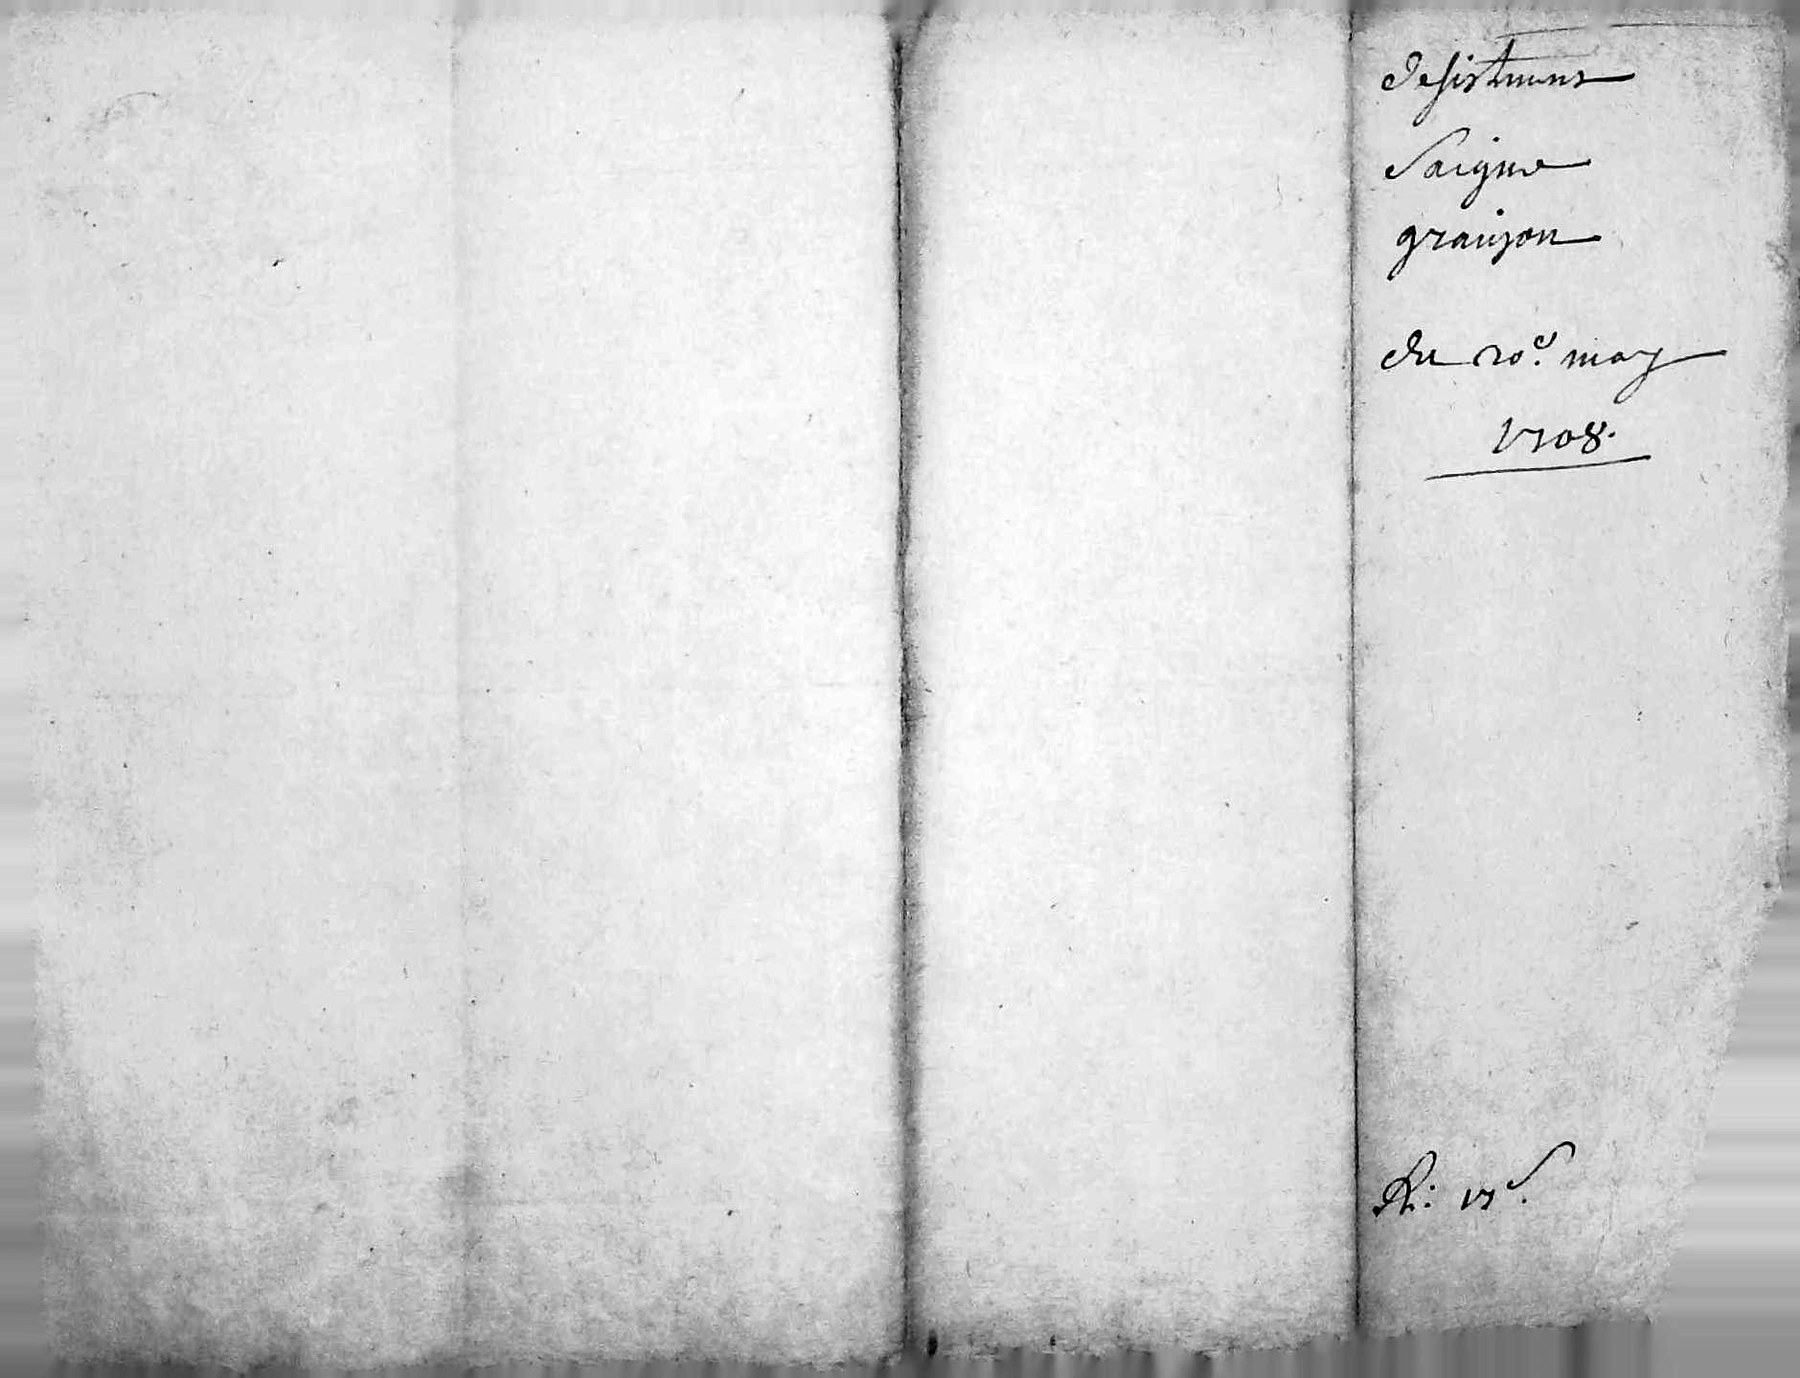 desistment
Saigne
granjon
du 20e. may
1708.
R: 17s.